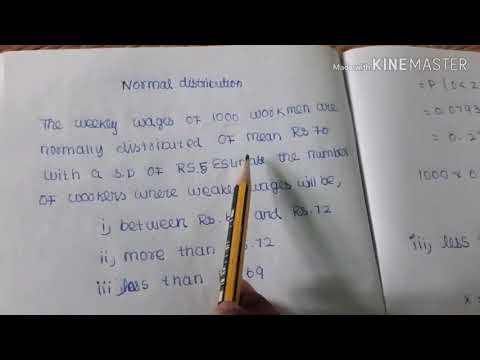 Made with KINEMASTER
Normal distribution
The weekly wages of 1000 workmen are
normally distributed of mean Rs 70
with a S.D of RS.5 Estimate the number
of workers where weakly wages will be,
i, between Rs. and Rs.72
ii, more than .72
iii, less than 69
= P (0<z
= 0.0793
= 0.2
1000 x
iii, less
x =